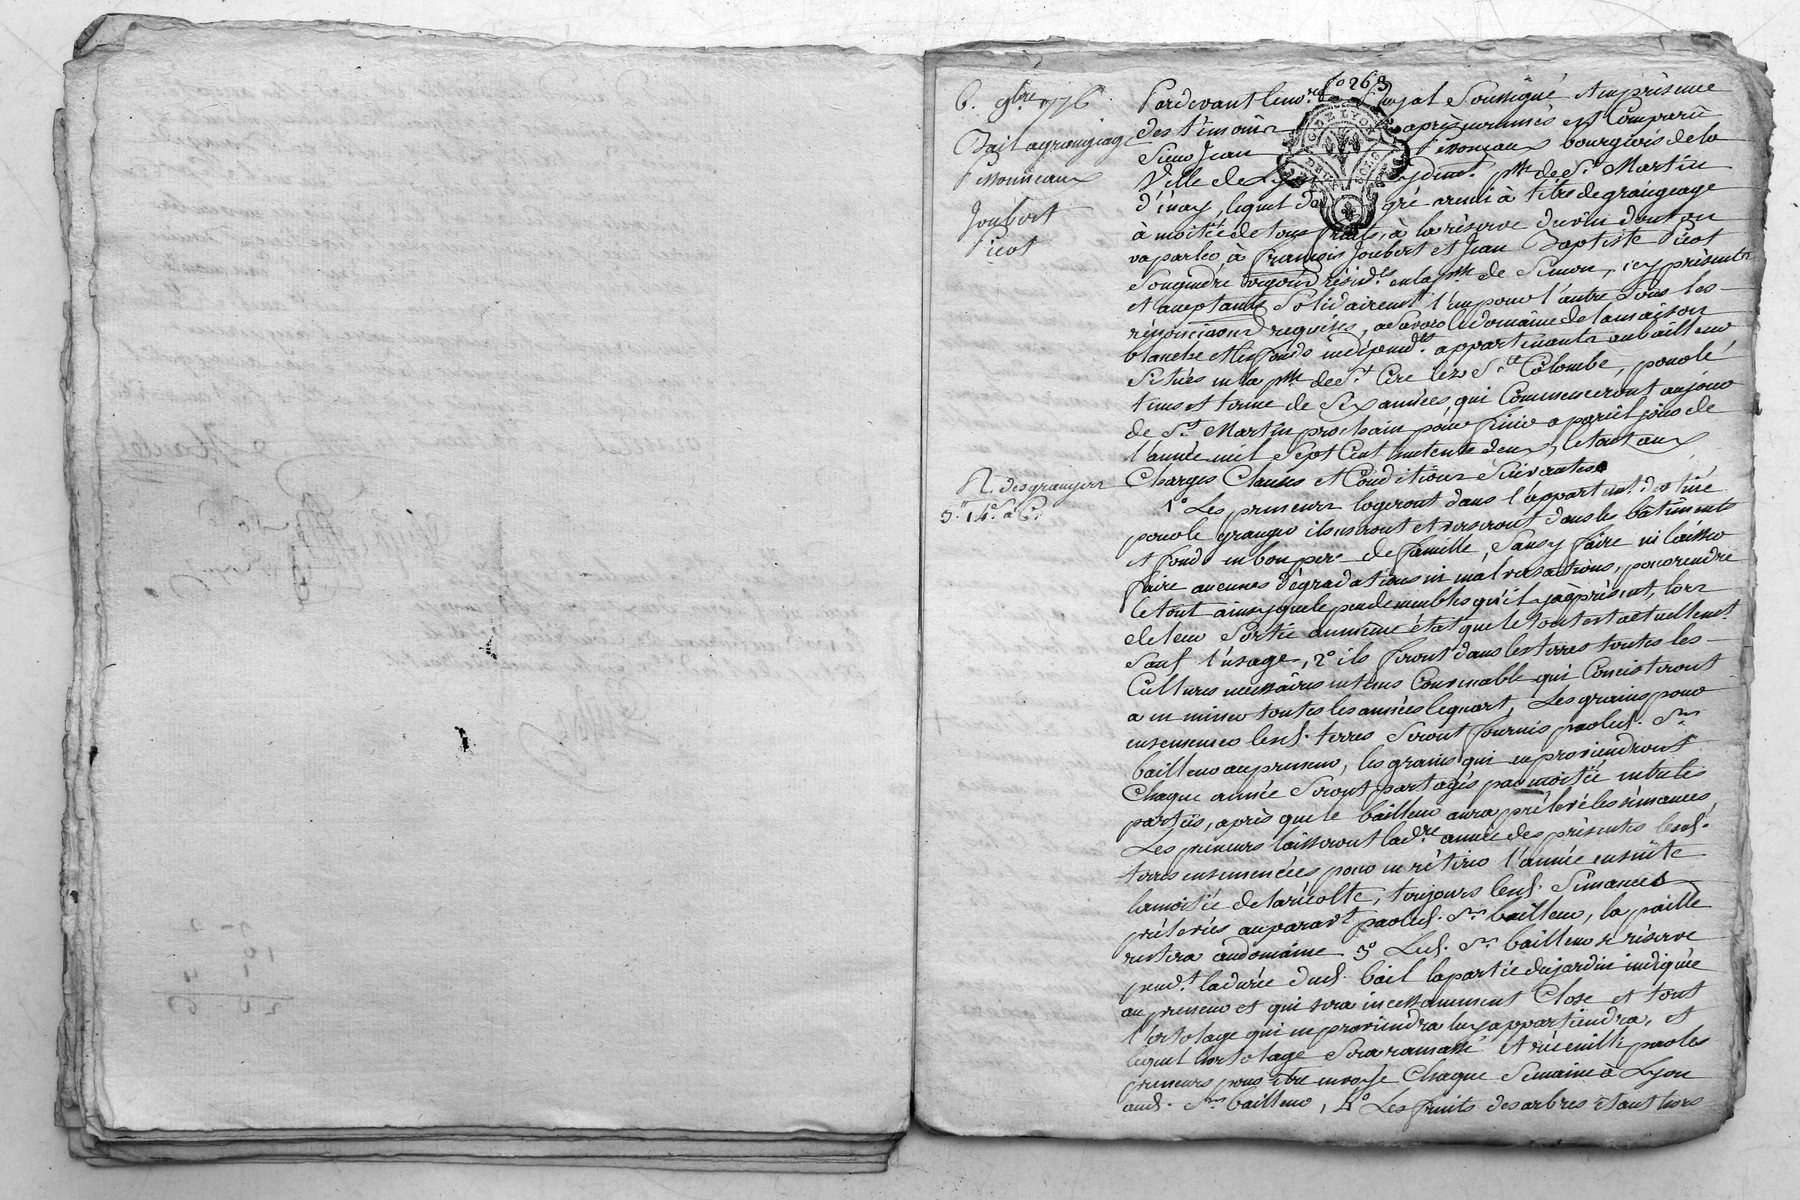 6. 9bre 1776
Bail a grangeage
Joubert
Picot
R. des grangers
fo 263
Pardevant le no.re royal soussigné et en présence
des témoins après nommés est comparu
Sieur Jean bourgeois de la
Ville de Lyon y demt. psse de St. Martin
d'énay, lequel de gré remis à titre de grangeage
à moitié de tous fruits, à la réserve du vin dont on
va parler, à François Joubert et Jean Baptiste Picot
Son gendre résid.ts en la psse de Simon, icy présents
et acceptants solidairemt. l'un pour l'autre sous les
renonciations requises, a savoir le domaine de la maison
blanche et les fonds en dépend.ts appartenants au bailleur
situés en la psse de St. Cire lez Ste Colombe, pour le
tems et terme de six années, qui commenceront au jour
de St. Martin prochain pour finir a pareil jour de
l'année mil sept cent huitente deux, le tout aux
Charges Clauses et Conditions Suivantes.
1o Les preneurs logeront dans l'appartemt. destiné
pour le granger ils useront et verseront dans les batiments
et fonds en bon pere de famille, sans y faire ni laisser
faire aucunes dégradations ni malversations, pour rendre
le tout ainsy que le peu de meubles qu'il y a àprésent, lors
de leur sortie au même état que le tout est actuellemt.
sauf l'usage, 2o ils feront dans les terres toutes les
Cultures necessaires en tems Convenable qui Concisteront
a en miner toutes les années le quart, Les grains pour
ensemencer lesd. terres seront fournis par led. Sr.
bailleur au preneur, les grains qui en proviendront
Chaque année seront partagés par moitié entre les
parties, après que le bailleur aura prélevé les semances,
Les preneurs laisseront la dre année des présentes lesd.
terres ensemencées pour en rétirer l'année ensuite
la moitié de la récolte, toujours lesd. Semances
prélevées auparavt. par led. Sr. bailleur, la paille
restera au domaine 3o Led. Sr. bailleur se réserve
pendt. la durée dud. bail la partie du jardin indiquée
au preneur et qui sera incessamment Close et tout
l'ortolage qui en proviendra luy appartiendra, et
lequel hortolage sera ramassé et récueilli par les
preneurs pour être envoyé Chaque Semaine a Lyon
aud. Sr. bailleur, 4o Les fruits des arbres étant hors